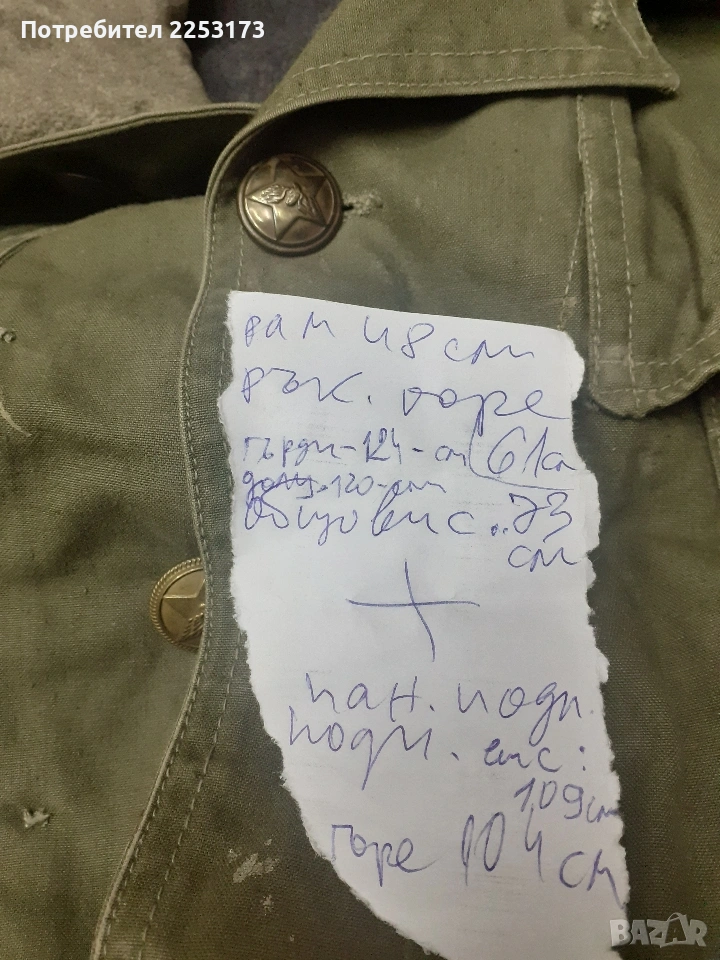 Потребител 2253173
рам 48 см
рък. горе
гърди-124-см 61см
долу.120-см
общо вис..73
см
пан. подп.
вис:
109см
горе 104 см
BAZAR